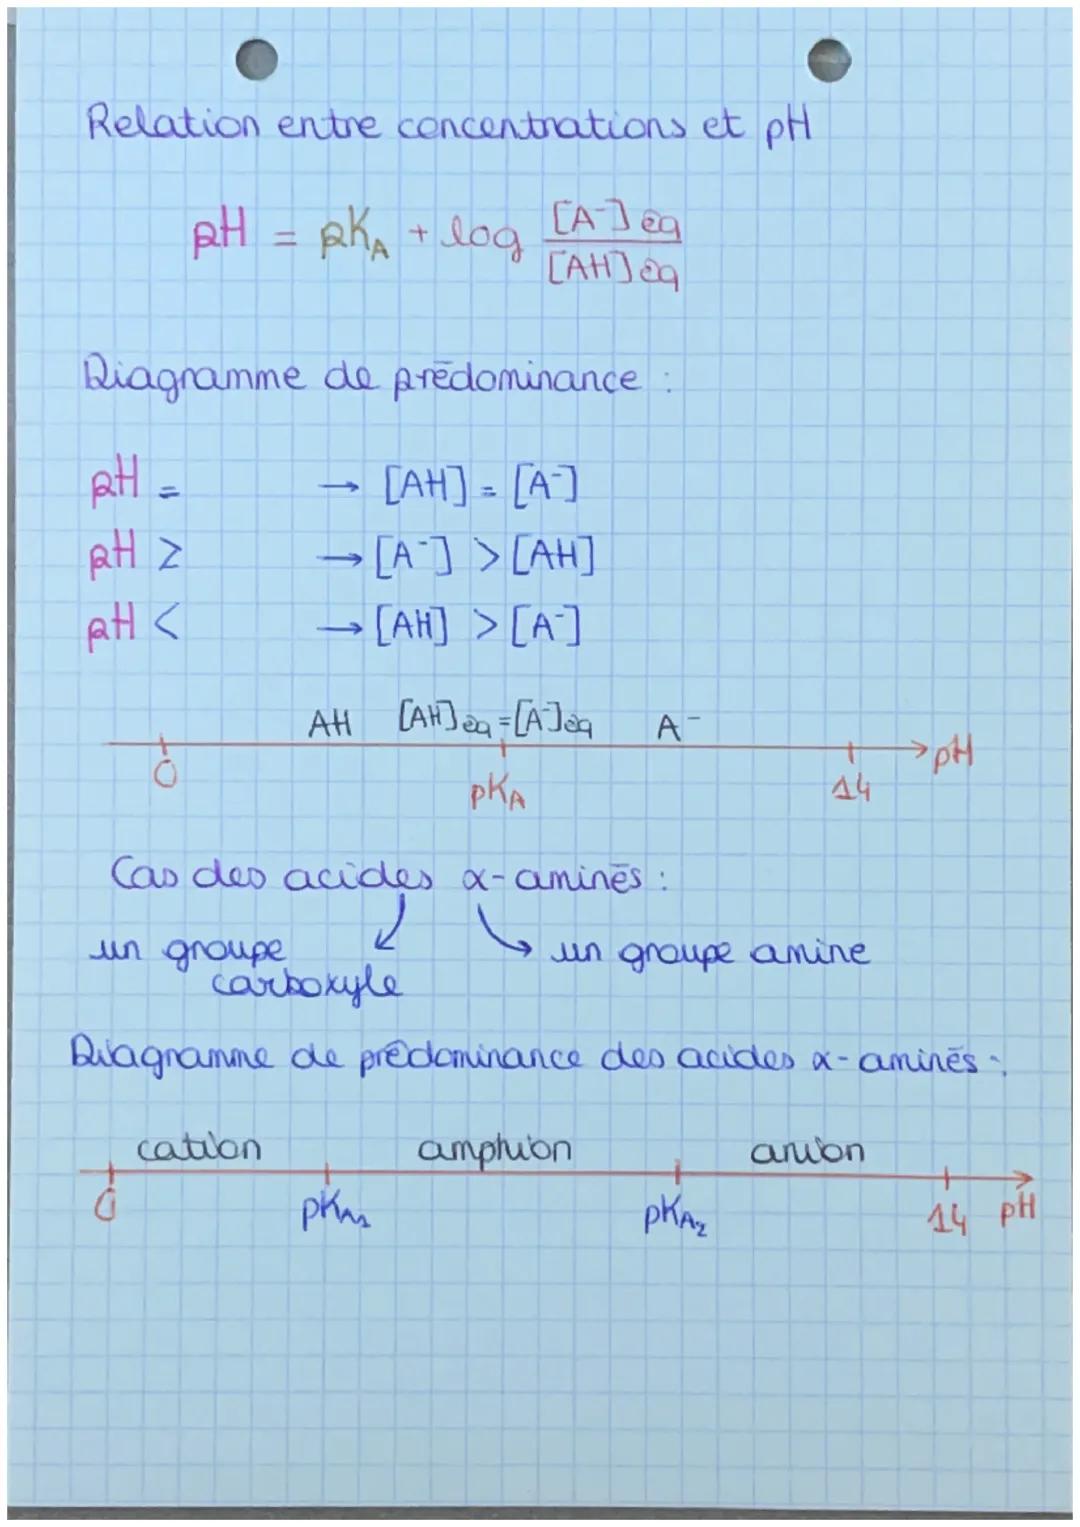 Relation entre concentrations et pH
pH = pKA + log [A-]éq / [AH]éq
Diagramme de prédominance :
pH = → [AH] = [A-]
pH ≥ → [A-] > [AH]
pH < → [AH] > [A-]
AH [AH]éq = [A-]éq A-
0 pKA 14 pH
Cas des acides α-aminés :
un groupe carboxyle
un groupe amine
Diagramme de prédominance des acides α-aminés :
cation amphion anion
0 pKA1 pKA2 14 pH